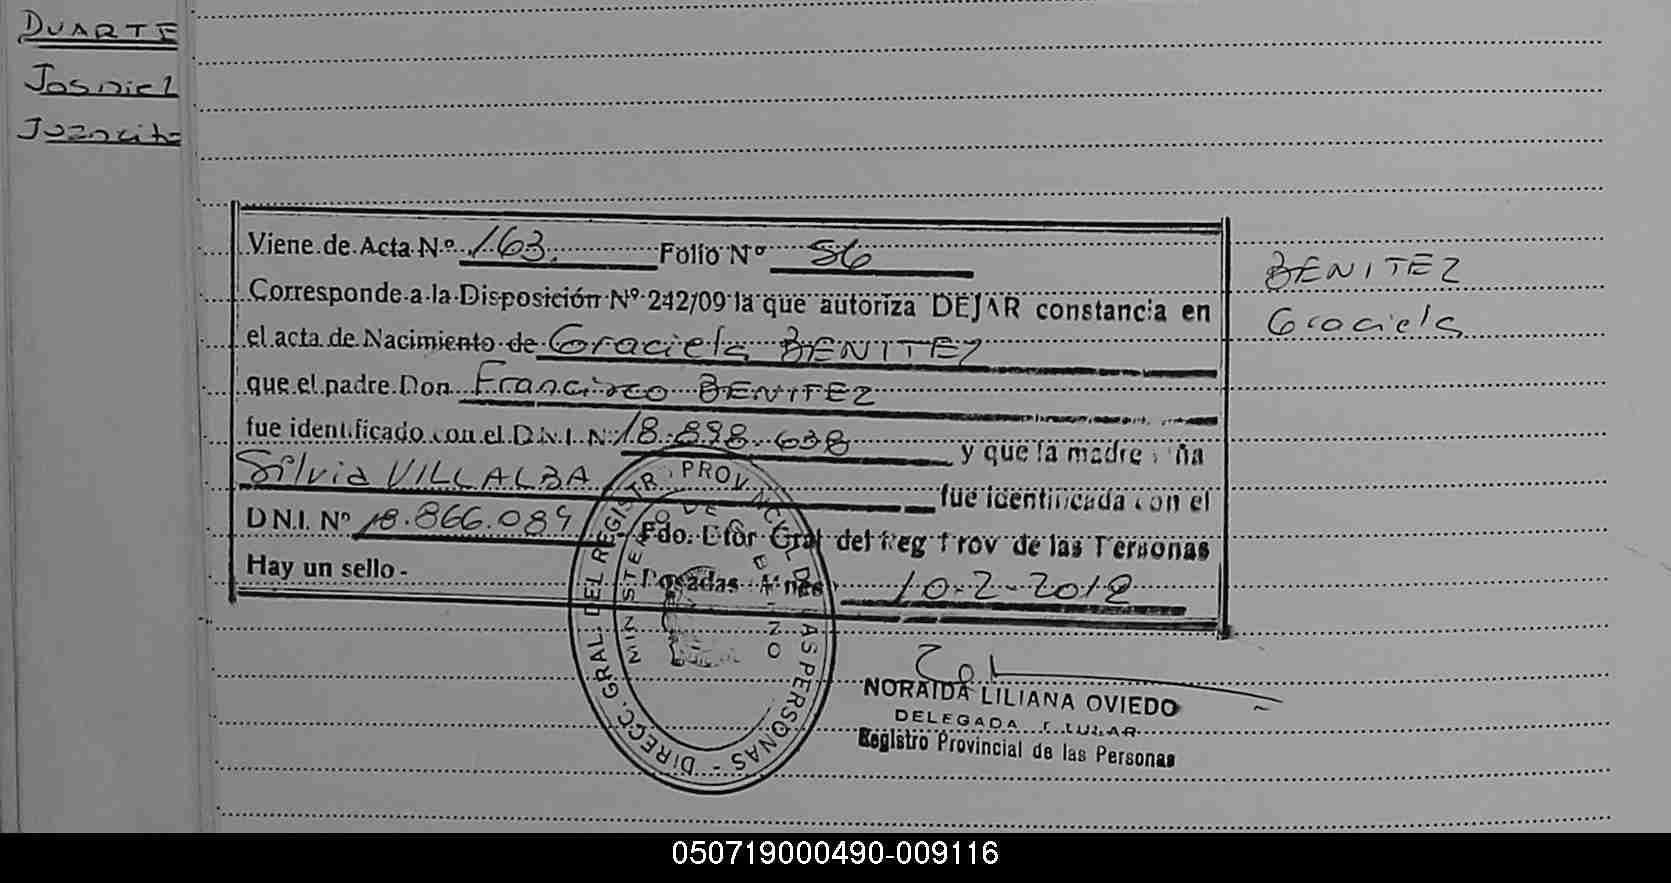 DUARTE
Viene de Acta Nº 163. Folio Nº 56
Corresponde a la Disposición Nº 242/09 la que autoriza DEJAR constancia en
el acta de Nacimiento de Graciela BENITEZ
que el padre Don Francisco BENITEZ
fue identificado con el D.N.I. Nº 18.898.638 y que la madre ña
Silvia VILLALBA fue identificada con el
D N.I. Nº 18.866.089 Fdo. Dtor Gral del Reg Prov de las Personas
Hay un sello - Posadas Mnes 10-2-2012
BENITEZ
Graciela
DIRECC. GRAL. DEL REGISTR. PROVINCIAL DE LAS PERSONAS -
NORAIDA LILIANA OVIEDO
DELEGADA TITULAR
Registro Provincial de las Personas
050719000490-009116